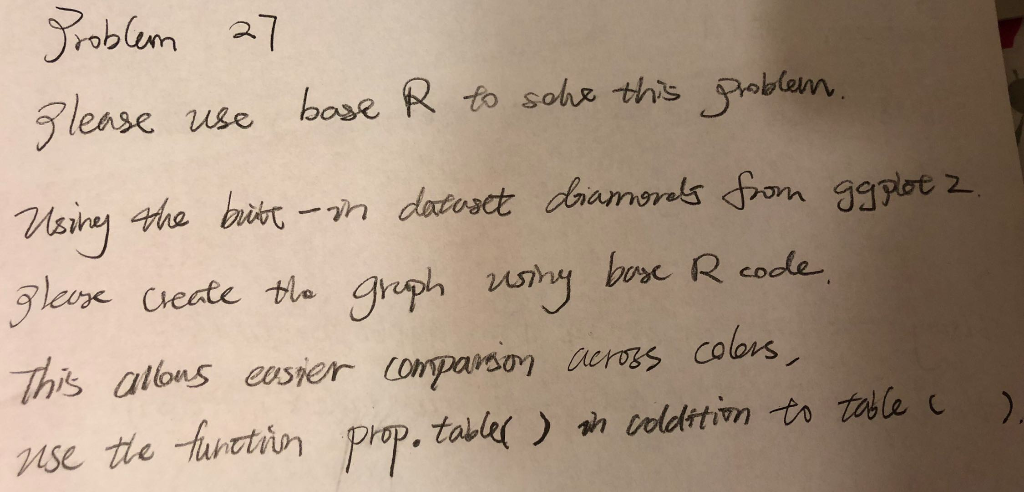 Problem 27
Please use base R to solve this problem.
Using the built-in dataset diamonds from ggplot2.
Please create the graph using base R code.
This allows easier comparison across colors,
use the function prop.table( ) in addition to table ( ).